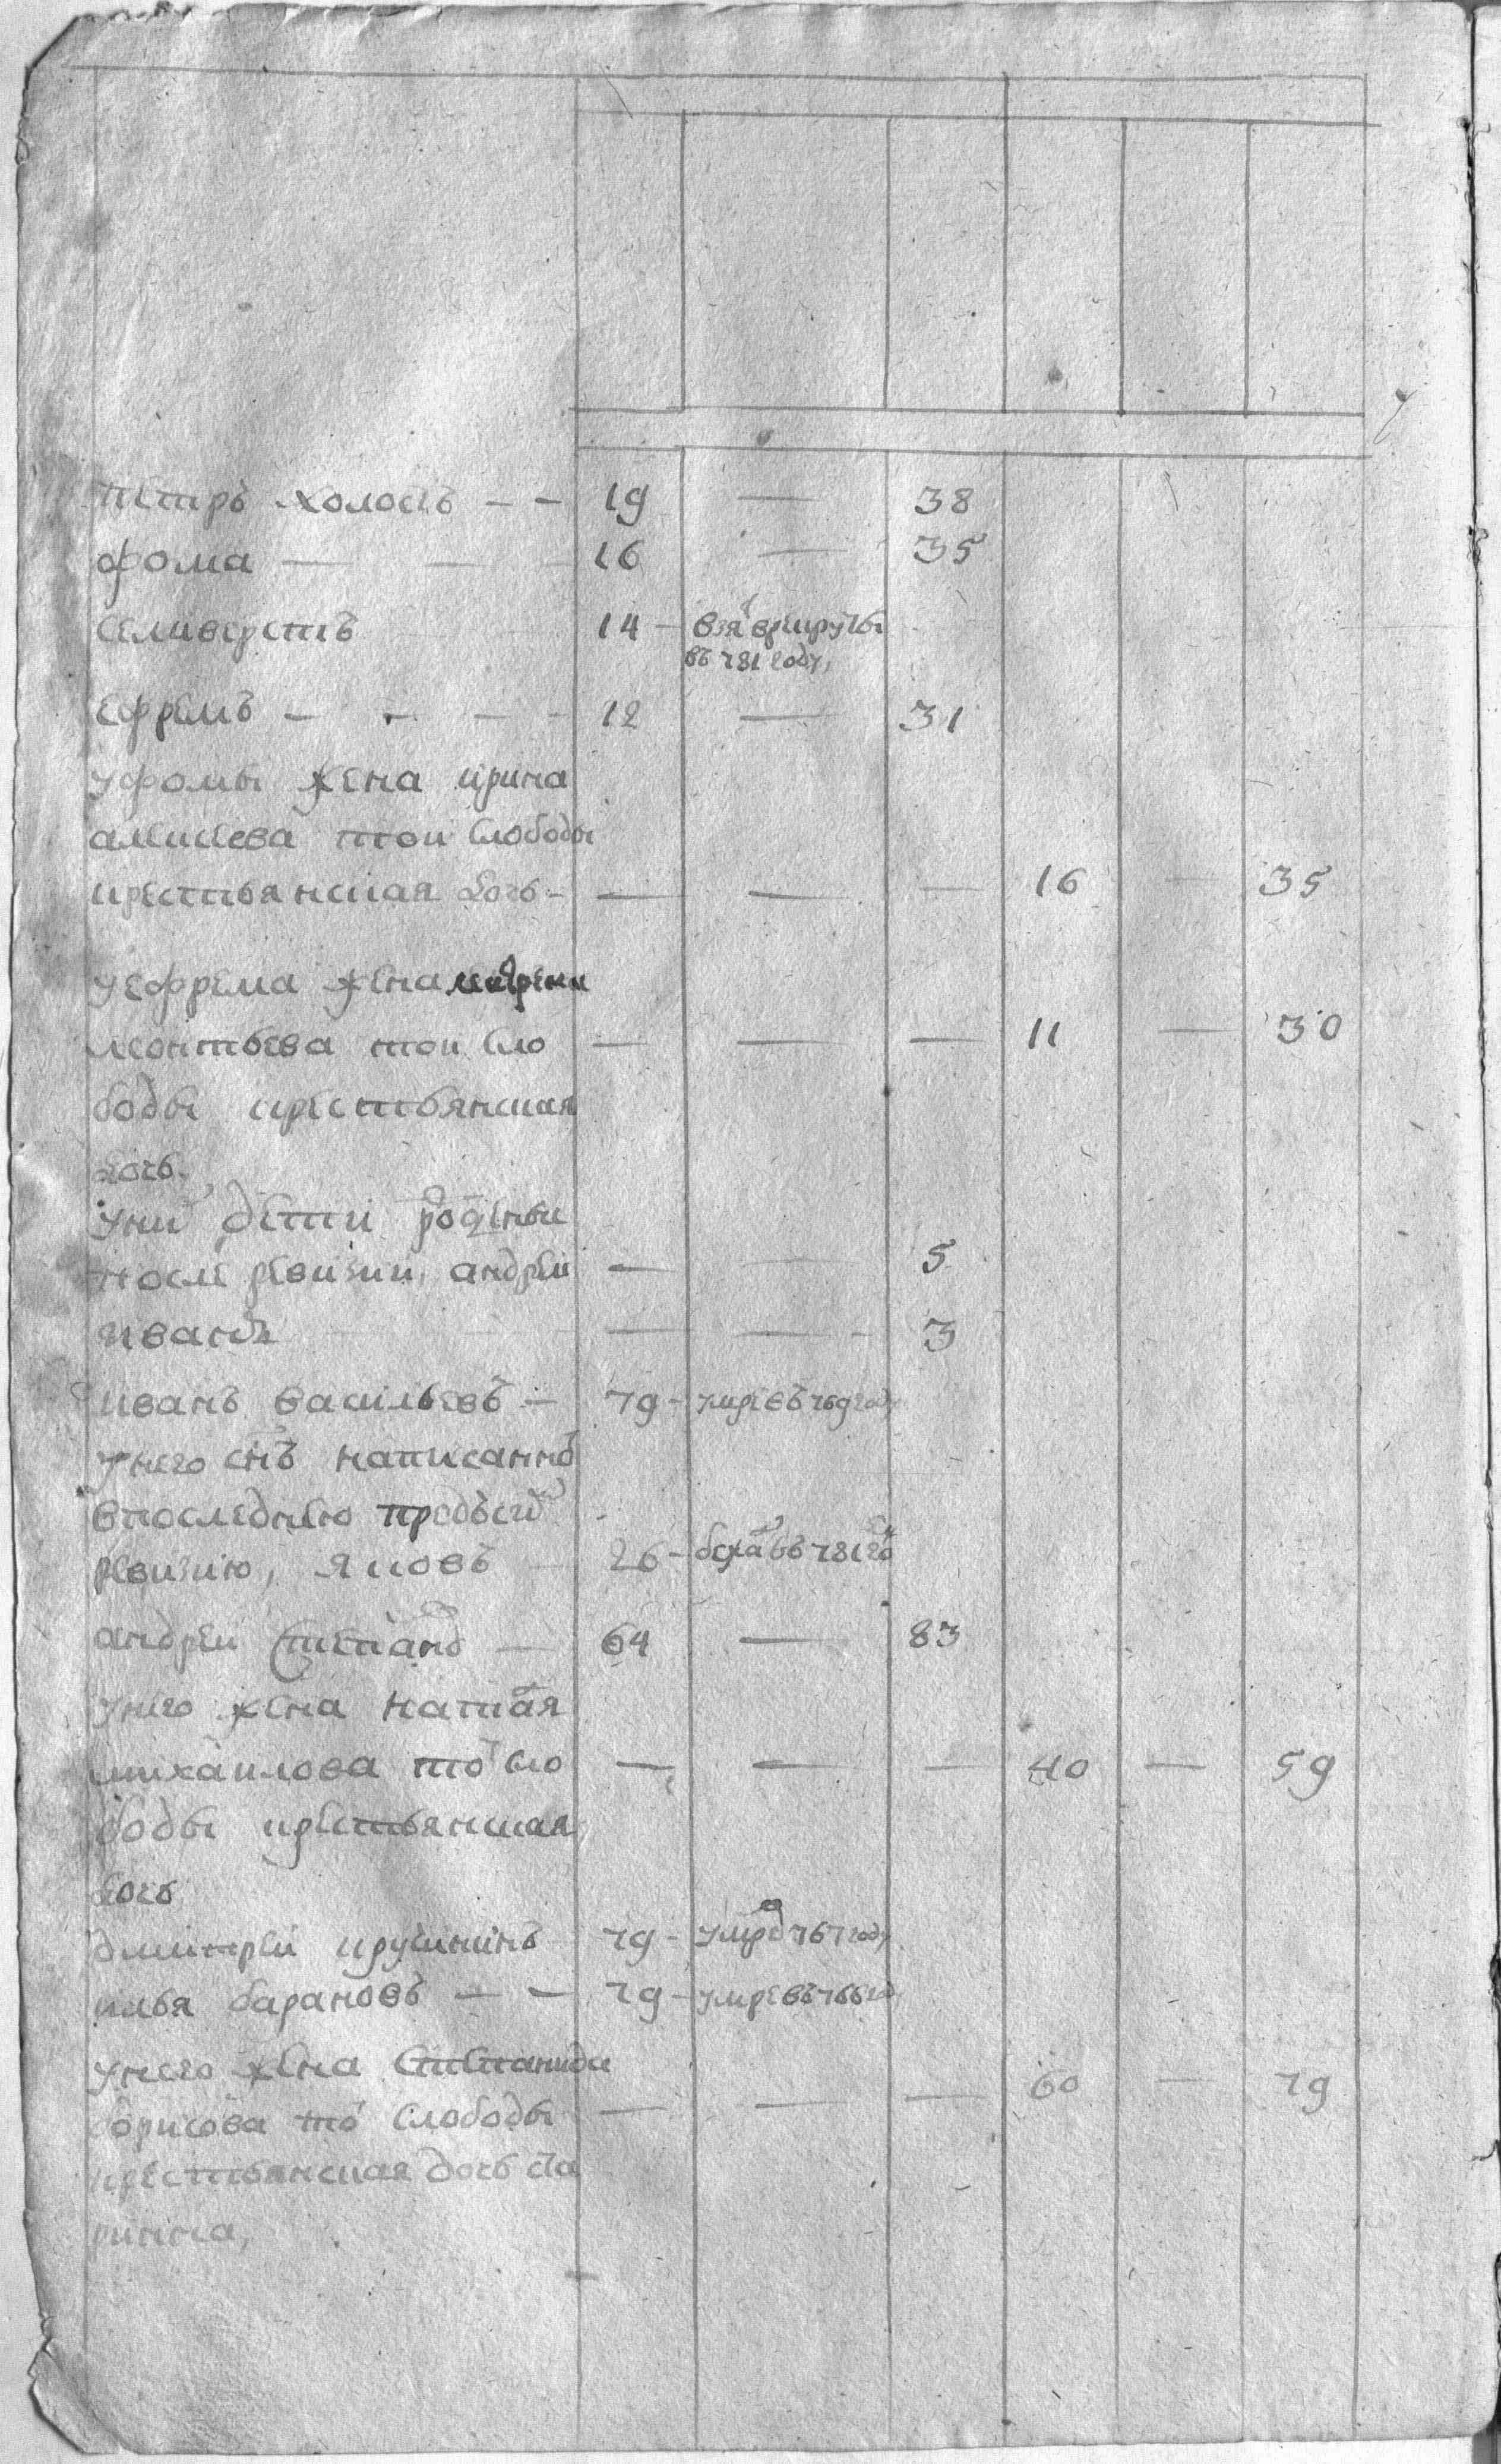 петръ холостъ - - 19 — 38
фома — — — 16 — 35
селиверстъ 14 - взя врекруты
въ 781 году,
ефремъ — - — - 12 — 31
уфомы жена ирина
алексеева тои слободы
крестьянская дочь - — — — 16 — 35
уефрема жена
леонтьева тои сло — — — 11 — 30
боды крестьянская
дочь
уни дети рожденые
после ревизии, андреи — — 5
иванъ — — — — - 3
иванъ васильевъ — 79 - умре въ 769 году
унего снъ написаннъ
впоследнюю предъид
ревизию, яковъ 26 - бежа въ 781 го
андреи степано — 64 — 83
унего жена наталя
михаилова то сло — — — 40 — 59
боды крестьянская
дочь
дмитреи 79 - умре 767 году
илья барановъ — — 79 - умре въ 766 год
унего жена степанида
борисова то слободы — — — 60 — 79
крестьянская дочь ста
ринна,